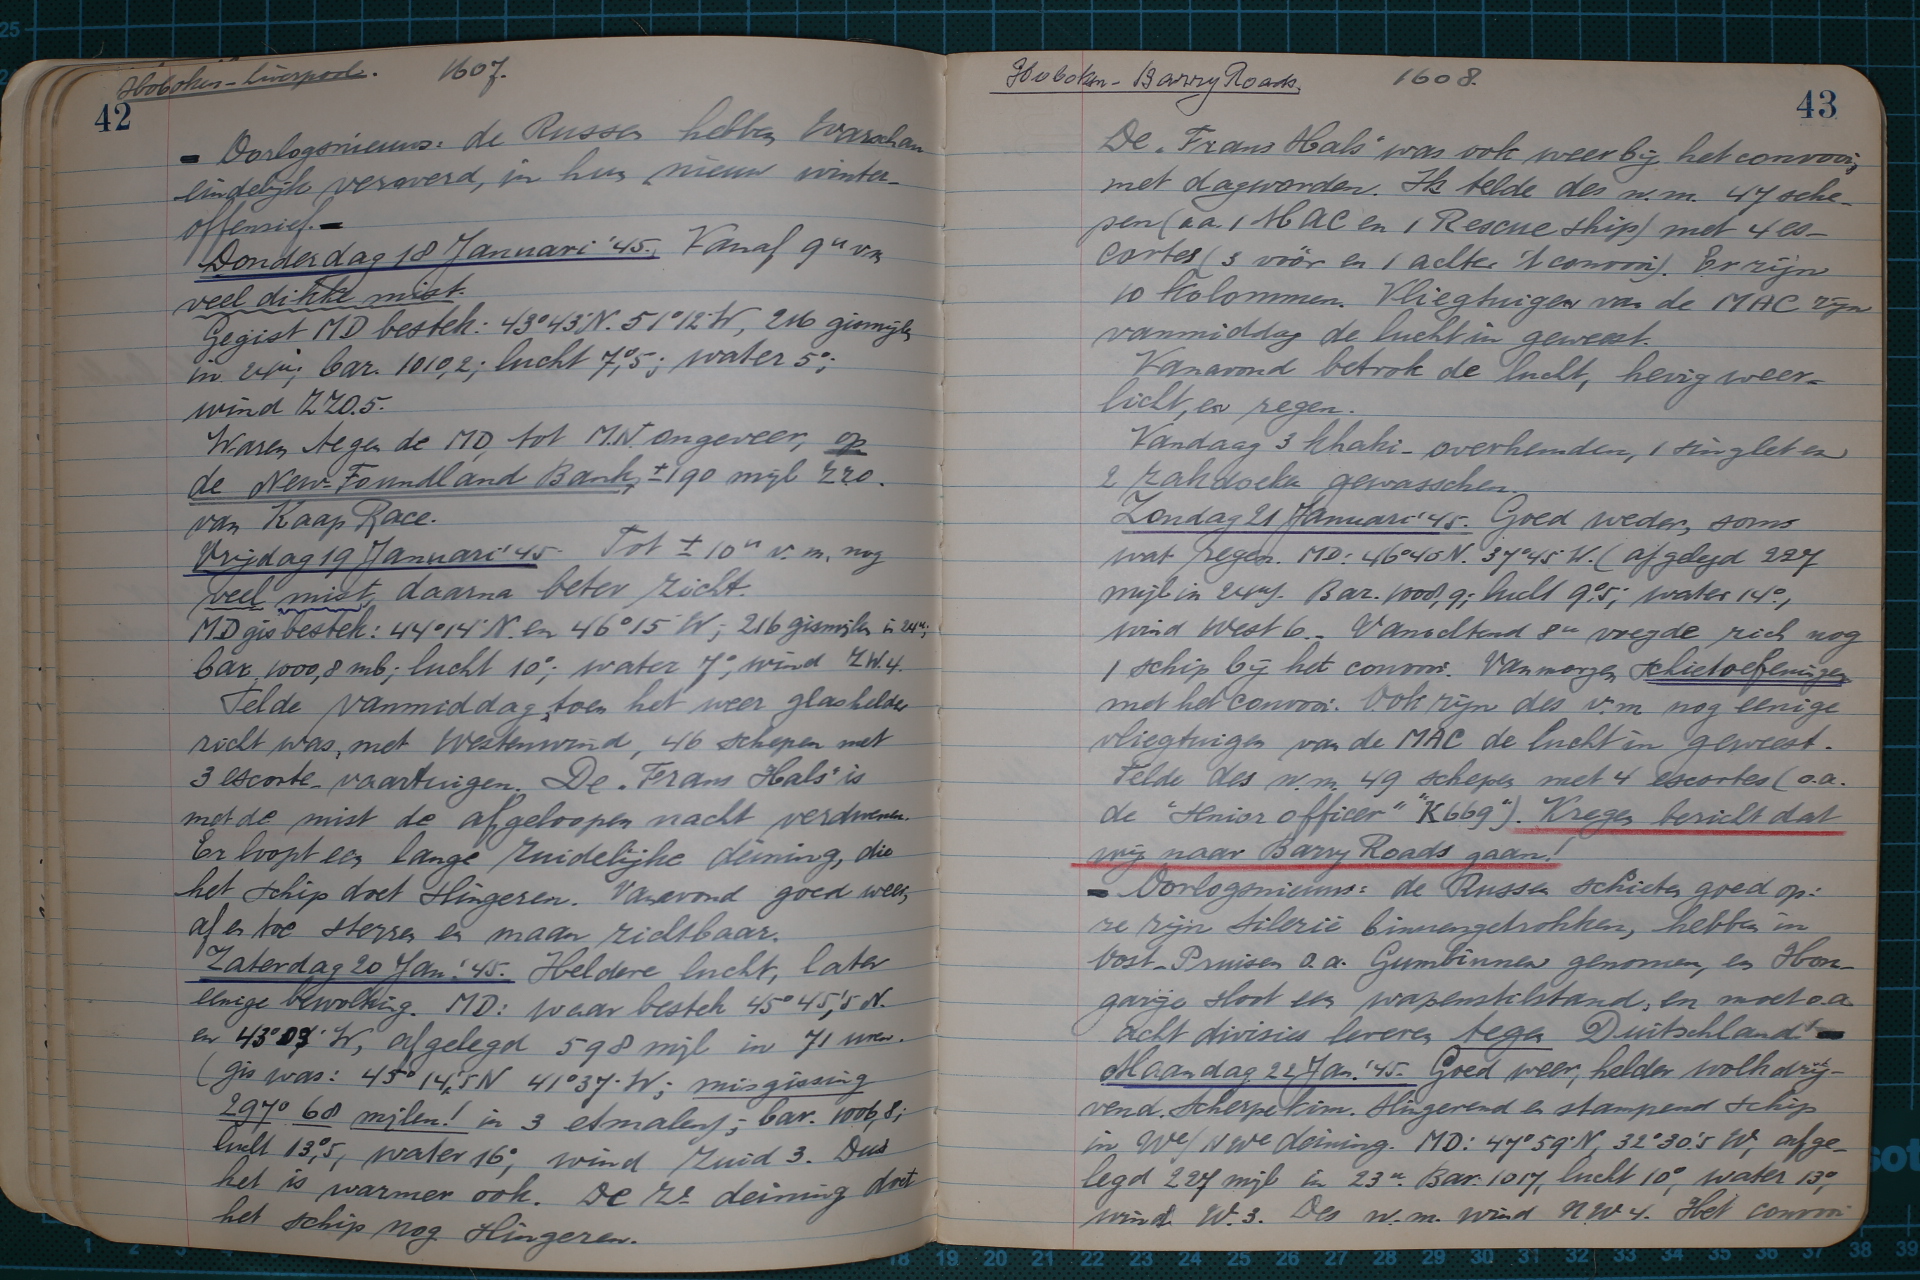 Hoboken - Liverpool. 1607.
42
- Oorlogsnieuws: de Russen hebben Warschau
eindelijk veroverd, in hun nieuw winter-
offensief. -
Donderdag 18 Januari '45. Vanaf 9u vm
veel dikke mist.
Gegist MD bestek: 43°43'N. 51°12'W, 216 gismijlen
in 24u; bar. 1010,2; lucht 7°,5; water 5°;
wind ZZO.5.
Waren tegen de MD, tot M.N. ongeveer, op
de New-Foundland Bank, ±190 mijl ZZO.
van Kaap Race.
Vrijdag 19 Januari '45. Tot ± 10u v.m. nog
veel mist, daarna beter zicht.
MD gisbestek: 44°14'N. en 46°15'W; 216 gismijlen in 24u;
bar. 1000,8 mb; lucht 10°; water 7°; wind ZW.4.
Telde vanmiddag, toen het weer glashelder
zicht was, met Westenwind, 46 schepen met
3 escorte-vaartuigen. De "Frans Hals" is
met de mist de afgeloopen nacht verdwenen.
Er loopt een lange zuidelijke deining, die
het schip doet slingeren. Vanavond goed weer,
af en toe sterren en maan zichtbaar.
Zaterdag 20 Jan. '45. Heldere lucht, later
eenige bewolking. MD: waar bestek 45°45',5 N.
en 43°03' W, afgelegd 598 mijl in 71 uren.
(gis was: 45°14',5 N 41°37' W; misgissing
297° 68 mijlen! in 3 etmalen); bar. 1006,8;
lucht 13°,5, water 16°, wind Zuid 3. Dus
het is warmer ook. De Ze deining doet
het schip nog slingeren.
Hoboken - Barry Roads. 1608.
43
De "Frans Hals" was ook weer bij het convooi,
met dagworden. Ik telde des n.m. 47 sche-
pen (o.a. 1 MAC en 1 Rescue ship) met 4 es-
cortes (3 vóór en 1 achter 't convooi). Er zijn
10 kolommen. Vliegtuigen van de MAC zijn
vanmiddag de lucht in geweest.
Vanavond betrok de lucht, hevig weer-
licht, en regen.
Vandaag 3 khaki-overhemden, 1 singlet en
2 zakdoeken gewasschen.
Zondag 21 Januari '45. Goed weder, soms
wat regen. MD: 46°40'N. 37°45'W. (afgelegd 227
mijl in 24u). Bar. 1008,9; lucht 9°,5; water 14°,
wind West 6. Vanochtend 8u voegde zich nog
1 schip bij het convooi. Vanmorgen schietoefeningen
met het convooi. Ook zijn des v.m. nog eenige
vliegtuigen van de MAC de lucht in geweest.
Telde des n.m. 49 schepen met 4 escortes (o.a.
de "senior officer" "K669"). Kregen bericht dat
wij naar Barry Roads gaan!
- Oorlogsnieuws: de Russen schieten goed op:
ze zijn Silezië binnengetrokken, hebben in
Oost-Pruisen o.a. Gumbinnen genomen, en Hon-
garije sloot een wapenstilstand, en moet o.a.
acht divisies leveren tegen Duitschland! -
Maandag 22 Jan. '45. Goed weer, helder wolkdrij-
vend. Scherpe kim. Slingerend en stampend schip
in We/NWe deining. MD: 47°59'N, 32°30',5 W, afge-
legd 227 mijl in 23u. Bar. 1017, lucht 10°, water 13°,
wind W.3. Des n.m. wind NW4. Het convooi